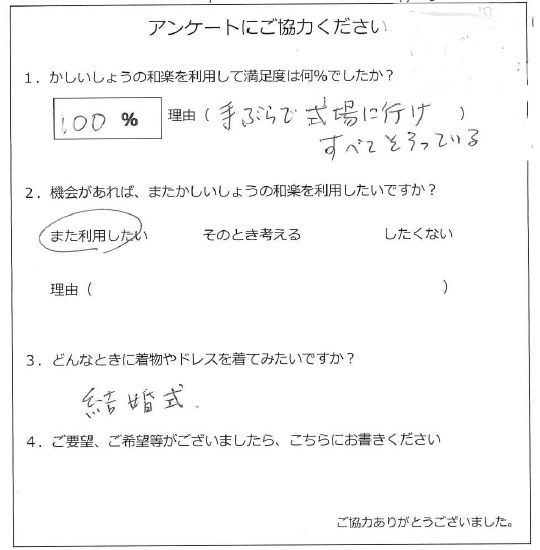 アンケートにご協力ください
1．かしいしょうの和楽を利用して満足度は何%でしたか？
100 % 理由（手ぶらで式場に行け）
すべてそろっている
2．機会があれば、またかしいしょうの和楽を利用したいですか？
また利用したい そのとき考える したくない
理由（ ）
3．どんなときに着物やドレスを着てみたいですか？
結婚式.
4．ご要望、ご希望等がございましたら、こちらにお書きください
ご協力ありがとうございました。